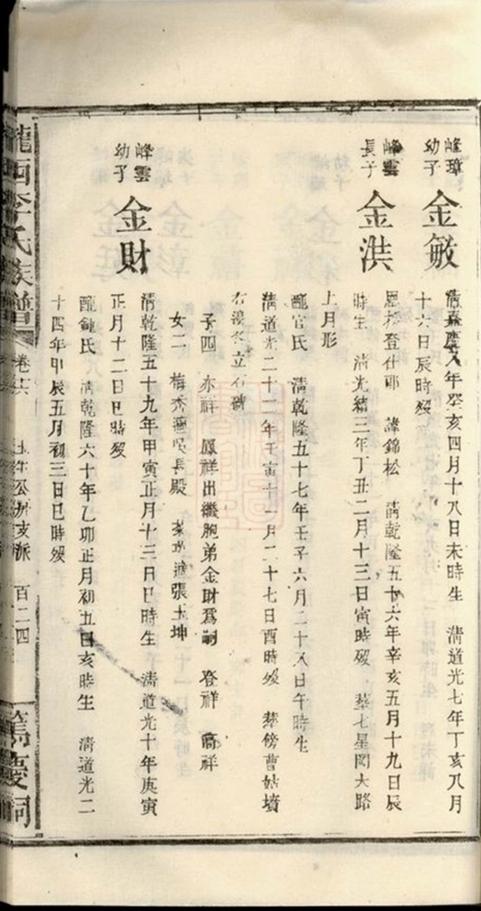 峰璋幼子 金敏
清嘉慶八年癸亥四月十八日未時生 清道光七年丁亥八月
十六日辰時歿
峰雲長子 金洪
恩授登仕郎 諱錦松 清乾隆五十六年辛亥五月十九日辰
時生 清光緒三年丁丑二月十三日寅時歿 葬七星 大路
上月形
配官氏 清乾隆五十七年壬子六月二十八日午時生
清道光二十二年壬寅十一月二十七日酉時歿 葬傍曹姑墳
右邊 立石碑
子四 亦祥 鳳祥出繼胞弟金財為嗣 春祥 祥
女二 梅秀適吳長殿 適張玉坤
峰雲幼子 金財
清乾隆五十九年甲寅正月十三日巳時生 清道光十年庚寅
正月十二日巳時歿
配 氏 清乾隆六十年乙卯正月初五日亥時生 清道光二
十四年甲辰五月初三日巳時歿
隴西李氏族譜 卷 公 派 百二四 篤慶祠